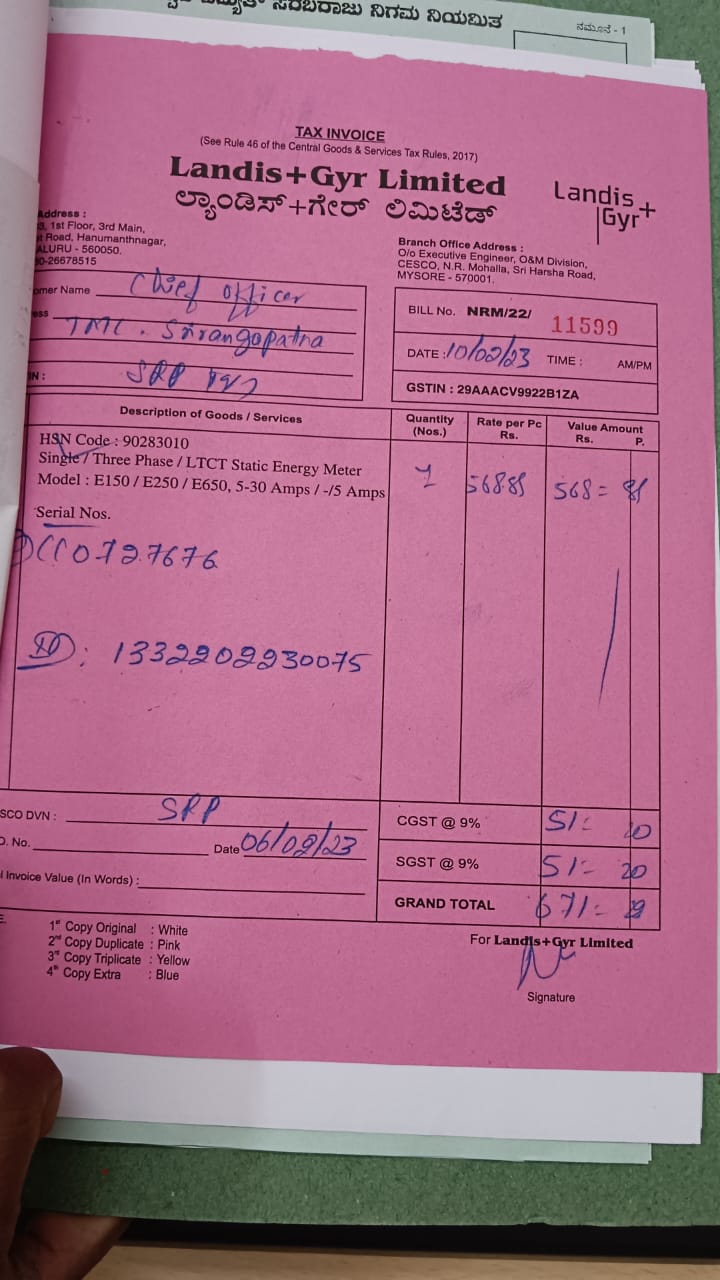 ಸರಬರಾಜು ನಿಗಮ ನಿಯಮಿತ
ನಮೂನೆ - 1
TAX INVOICE
(See Rule 46 of the Central Goods & Services Tax Rules, 2017)
Landis+Gyr Limited
ಲ್ಯಾಂಡಿಸ್+ಗೇರ್ ಲಿಮಿಟೆಡ್
Landis+
Gyr
Address :
1st Floor, 3rd Main,
Road, Hanumanthnagar,
ALURU - 560050.
0-26678515
Branch Office Address :
O/o Executive Engineer, O&M Division,
CESCO, N.R. Mohalla, Sri Harsha Road,
MYSORE - 570001.
omer Name Chief officer
ess TMC . Srirangapatna
IN : SRP
BILL No. NRM/22/ 11599
DATE : 10/02/23 TIME : AM/PM
GSTIN : 29AAACV9922B1ZA
Description of Goods / Services
Quantity (Nos.)
Rate per Pc Rs.
Value Amount Rs. P.
HSN Code : 90283010
Single / Three Phase / LTCT Static Energy Meter
Model : E150 / E250 / E650, 5-30 Amps / -/5 Amps
1 568.85 568=
Serial Nos.
0727676
ID : 1332202230075
SCO DVN : SRP
O. No. Date 06/02/23
l Invoice Value (In Words) :
CGST @ 9% 51= 20
SGST @ 9% 51= 20
GRAND TOTAL 671=
1st Copy Original : White
2nd Copy Duplicate : Pink
3rd Copy Triplicate : Yellow
4th Copy Extra : Blue
For Landis+Gyr Limited
Signature